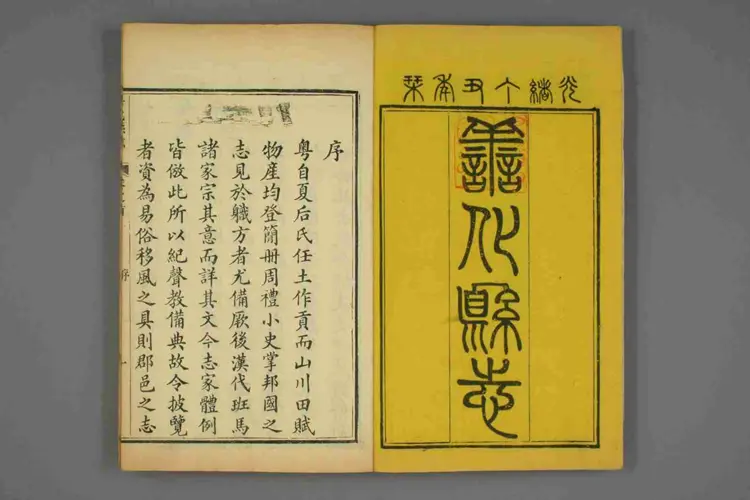 光緒丁丑年栞
善化縣志
序
粵自夏后氏任土作貢而山川田賦
物産均登簡冊周禮小史掌邦國之
志見於職方者尤備厥後漢代班馬
諸家宗其意而詳其文今志家體例
皆倣此所以紀聲教備典故令披覽
者資為易俗移風之具則郡邑之志
序